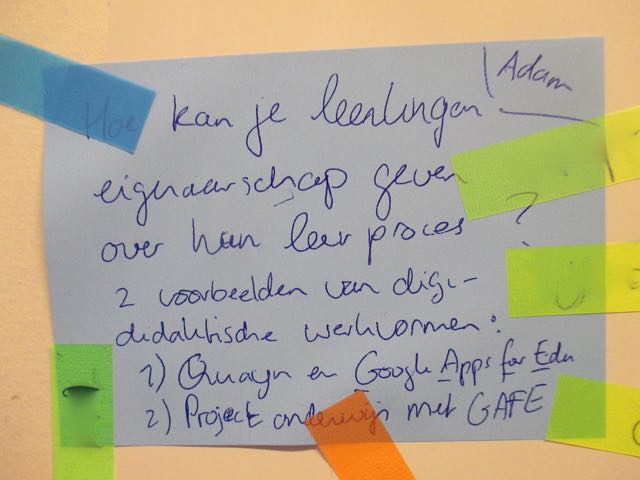 Adam
Hoe kan je leerlingen
eigenaarschap geven
over hun leerproces ?
2 voorbeelden van digi-
didaktische werkvormen:
1) Quayn en Google Apps for Edu
2) Project onderwijs met GAFE